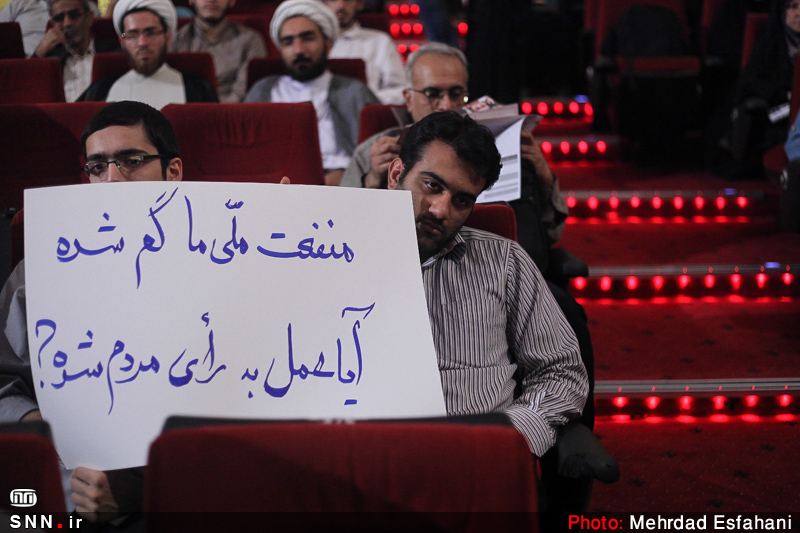 منفعت ملّی ما گم شده
آیا عمل به رأی مردم شده؟
SNN.ir
Photo: Mehrdad Esfahani